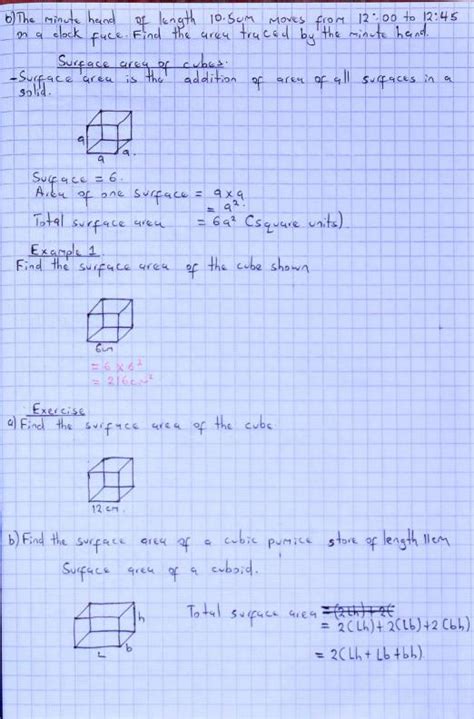 b) The minute hand of length 10.5cm moves from 12:00 to 12:45
on a clock face. Find the area traced by the minute hand.
Surface area of cubes.
- Surface area is the addition of area of all surfaces in a
solid.
a
a
a
Surface = 6.
Area of one surface = a x a
= a².
Total surface area = 6a² (square units)
Example 1
Find the surface area of the cube shown
6cm
= 6 x 6²
= 216cm²
Exercise
a) Find the surface area of the cube
12 cm
b) Find the surface area of a cubic pumice stone of length 11cm
Surface area of a cuboid.
h
L
b
Total surface area
= 2(Lh) + 2(Lb) + 2(bh)
= 2(Lh + Lb + bh)